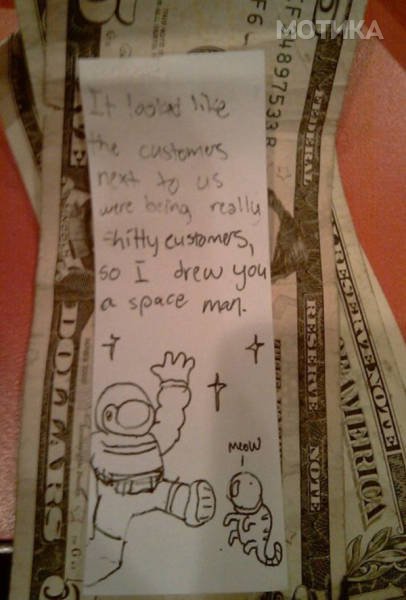 МОТИКА
It looked like
the customers
next to us
were being really
shitty customers,
so I drew you
a space man.
meow
F6
4897533
FEDERAL
RESERVE NOTE
DOLLARS
RESERVE NOTE
OF AMERICA